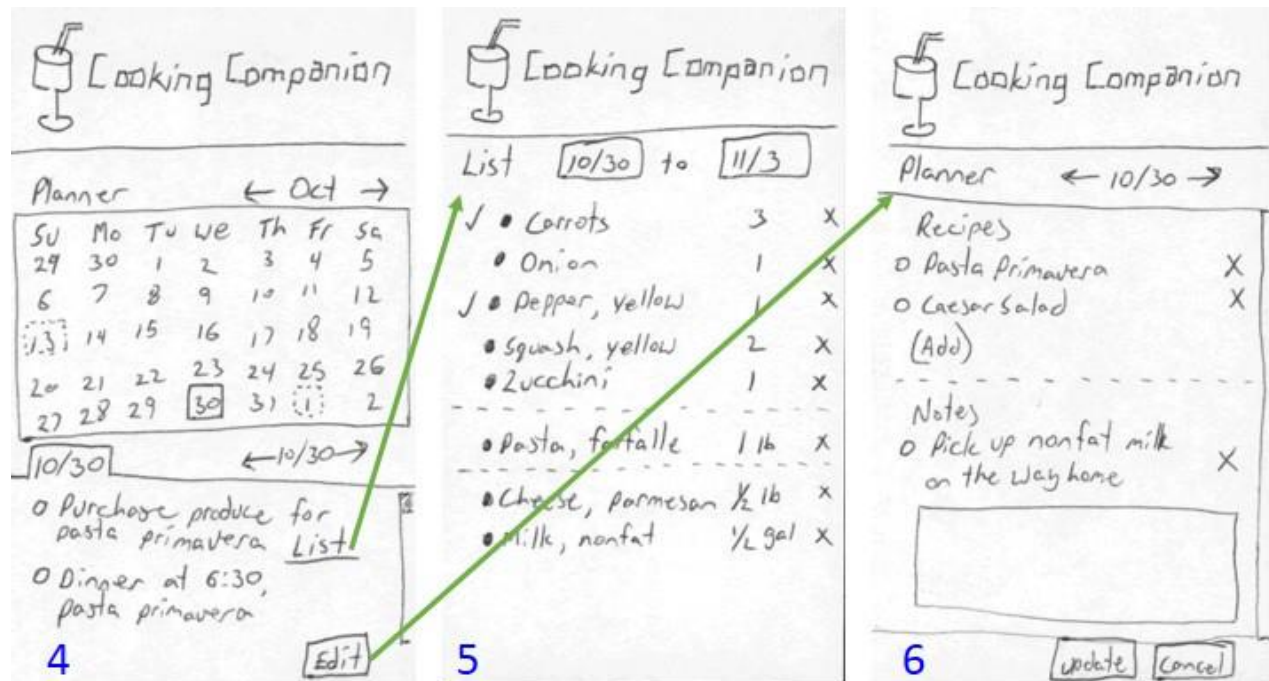 Cooking Companion
Planner ← Oct →
Su Mo Tu We Th Fr Sa
29 30 1 2 3 4 5
6 7 8 9 10 11 12
13 14 15 16 17 18 19
20 21 22 23 24 25 26
27 28 29 30 31 1 2
10/30 ←10/30→
Purchase produce for
pasta primavera List
Dinner at 6:30,
pasta primavera
Edit
4
Cooking Companion
List 10/30 to 11/3
✓ • Carrots 3 X
• Onion 1 X
✓ • Pepper, yellow 1 X
• Squash, yellow 2 X
• Zucchini 1 X
• Pasta, farfalle 1 lb X
• Cheese, parmesan ½ lb X
• Milk, nonfat ½ gal X
5
Cooking Companion
Planner ← 10/30 →
Recipes
Pasta Primavera X
Caesar Salad X
(Add)
Notes
Pick up nonfat milk
on the way home X
update cancel
6